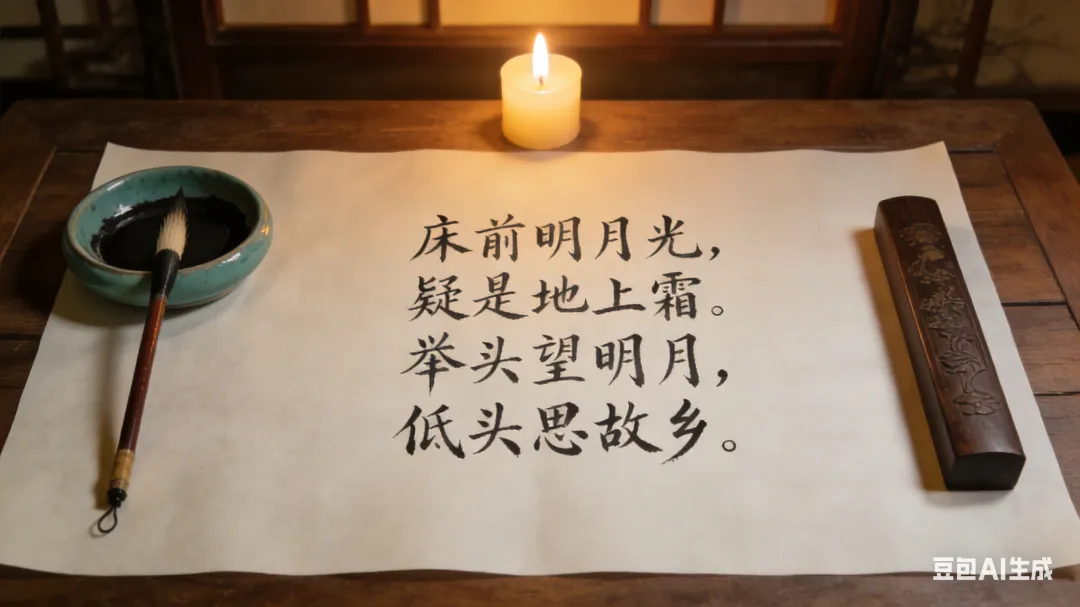 床前明月光，
疑是地上霜。
举头望明月，
低头思故乡。
豆包AI生成